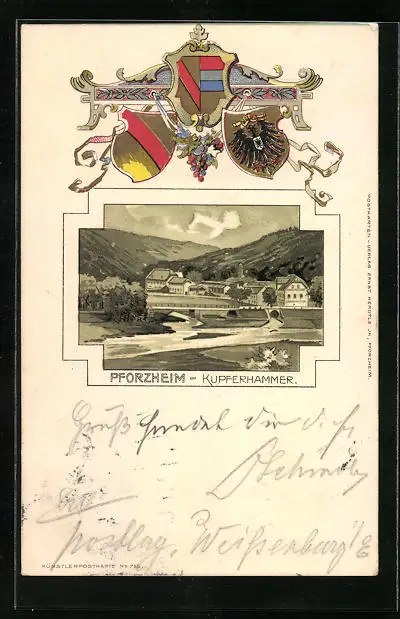 PFORZHEIM - KUPFERHAMMER.
POSTKARTEN-VERLAG ERNST HERDTLE JR., PFORZHEIM.
Gruß sendet dir d. f.
postlag. Weißenburg i/E
KÜNSTLERPOSTKARTE No